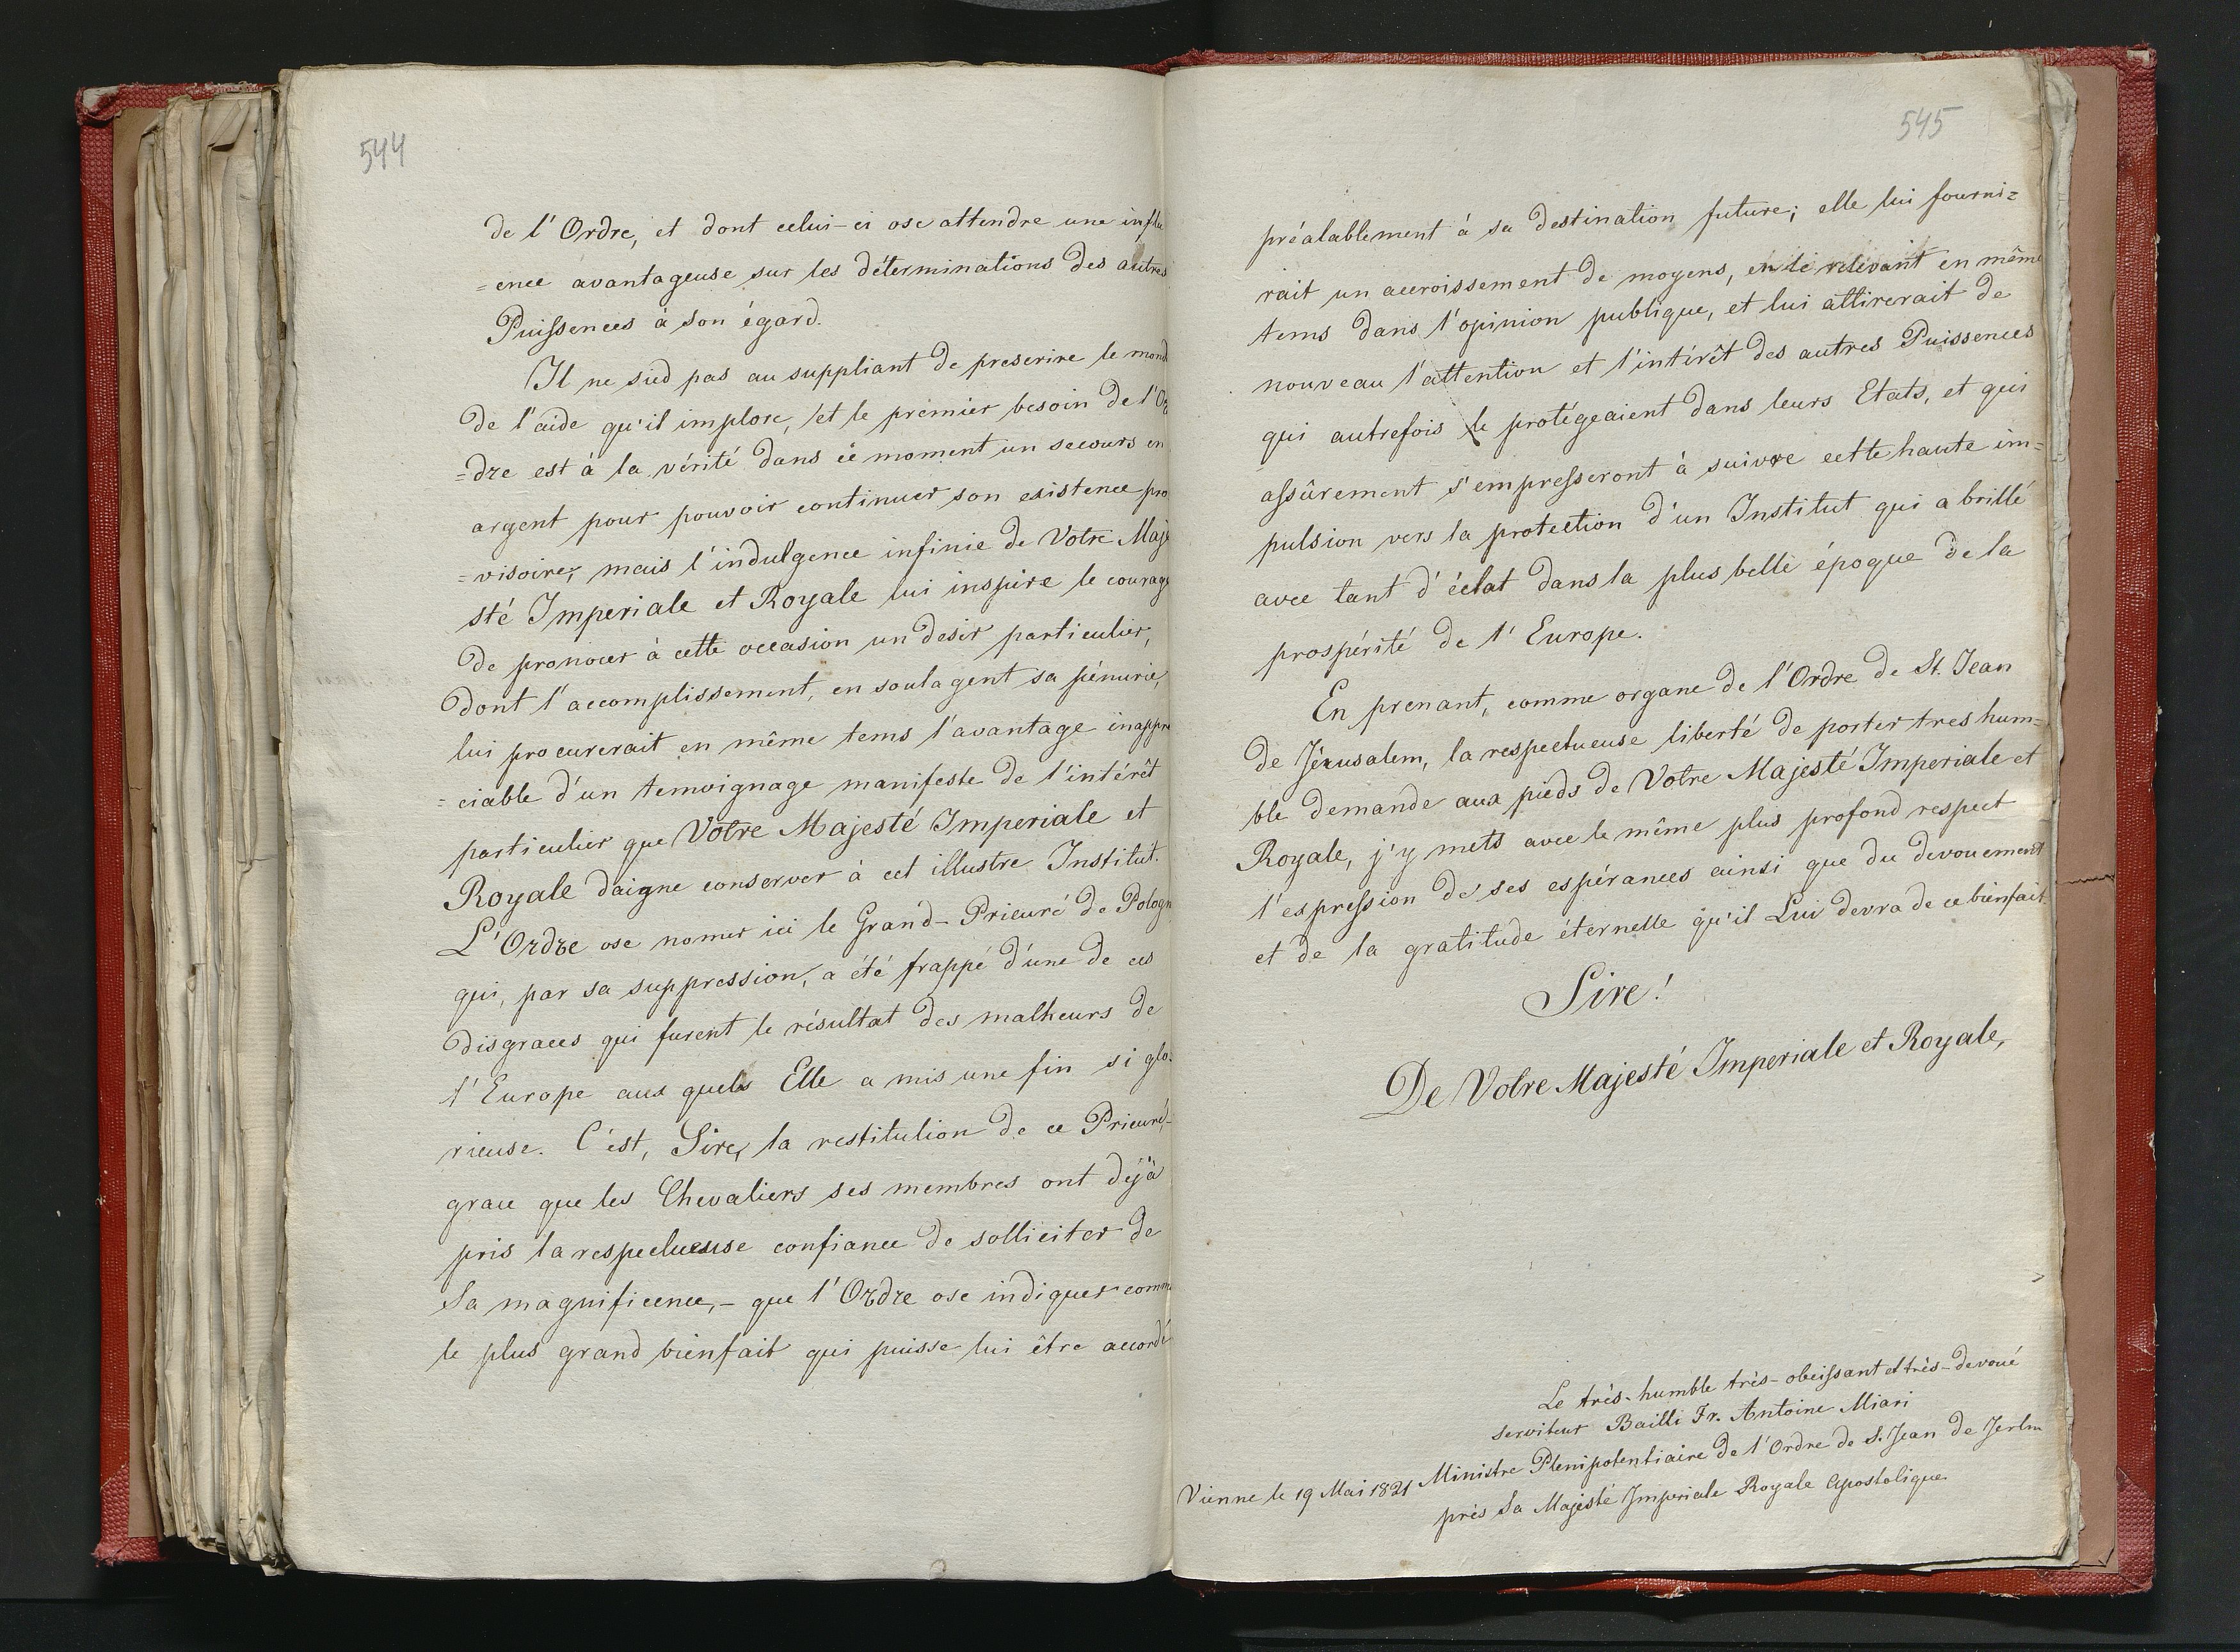 544
de l'Ordre, et dont celui-ci ose attendre une influ
=ence avantageuse sur les déterminations des autres
Puissences à son égard.
Il ne sied pas au suppliant de prescrire le mond
de l'aide qu'il implore, et le prémier besoin de l'Or
=dre est à la vérité dans ce moment un secours en
argent pour pouvoir continuer son existence pro
=visoire; mais l'indulgence infinie de Votre Maje
sté Imperiale et Royale lui inspire le courage
de prononcer à cette occasion un desir particulier,
dont l'accomplissement, en soulagent sa pénurie,
lui procurerait en même tems l'avantage inappré
=ciable d'un temoignage manifeste de l'intérêt
particulier que Votre Majesté Imperiale et
Royale daigne conserver à cet illustre Institut.
L'Ordre ose nomer ici le Grand-Prieuré de Pologn
qui, par sa suppression, a été frappé d'une de ces
disgraces qui furent le résultat des malheurs de
l'Europe aux quels Elle a mis une fin si glo
rieuse. C'est, Sire, la restitution de ce Prieuré,-
grace que les Chevaliers ses membres ont déjà
pris la respectueuse confiance de solliciter de
Sa magnificence,- que l'Ordre ose indiquer comme
le plus grand bienfait qui puisse lui être accordé
545
préalablement à sa destination future; elle lui fourni=
rait un accroissement de moyens, en le relevant en même
tems dans l'opinion publique, et lui attirerait de
nouveau l'attention et l'intérêt des autres Puissences
qui autrefois le protégeaient dans leurs Etats, et qui
assûrement s'empresseront à suivre cette haute im=
pulsion vers la protection d'un Institut qui a brillé
avec tant d'éclat dans la plus belle époque de la
prospérité de l'Europe.
En prenant, comme organe de l'Ordre de St. Jean
de Jérusalem, la respectueuse liberté de porter tres hum=
ble demande aux pieds de Votre Majesté Imperiale et
Royale, j'y mets avec le même plus profond respect
l'expression de ses espérances ainsi que du devouement
et de la gratitude éternelle qu'il Lui devra de ce bienfait.
Sire!
De Votre Majesté Imperiale et Royale,
Le très-humble très-obeissant et très-devoué
serviteur Bailli Fr. Antoine Miari
Vienne le 19 Mai 1821 Ministre Plenipotentiaire de l'Ordre de S. Jean de Jerlm
près Sa Majesté Imperiale Royale Apostolique